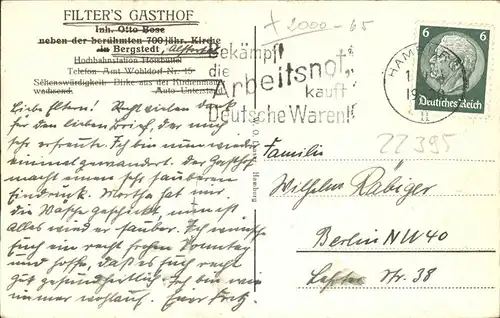 FILTER'S GASTHOF
Inh. Otto Bose
neben der berühmten 700 jähr. Kirche
in Bergstedt,
Hochbahnstation Hoisbüttel
Telefon Amt Wohldorf Nr. 15
Sehenswürdigkeit: Birke aus der Ruhmenhand
wachsend. Auto-Unterstand
Liebe Eltern! Recht vielen Dank
für den lieben Brief, der mich
sehr erfreute. Ich bin nun wieder
einmal gewandert. Der Gasthof
macht einen sehr sauberen
Eindruck. Martha hat mir
die Wäsche geschickt nun ist
Alles wieder sauber. Ich wünsche
Euch ein recht frohen Sonntag
und hoffe, daß es Euch recht
gut gesundheitlich. Ich bin wie
immer wohlauf. Euer Fritz.
+ 2000-65
Bekämpft
die
Arbeitsnot,
kauft
Deutsche Waren!
HAMBURG
1
11
6 6
Deutsches Reich
22395
Hamburg
Familie
Wilhelm Räbiger
Berlin NW 40
Str. 38